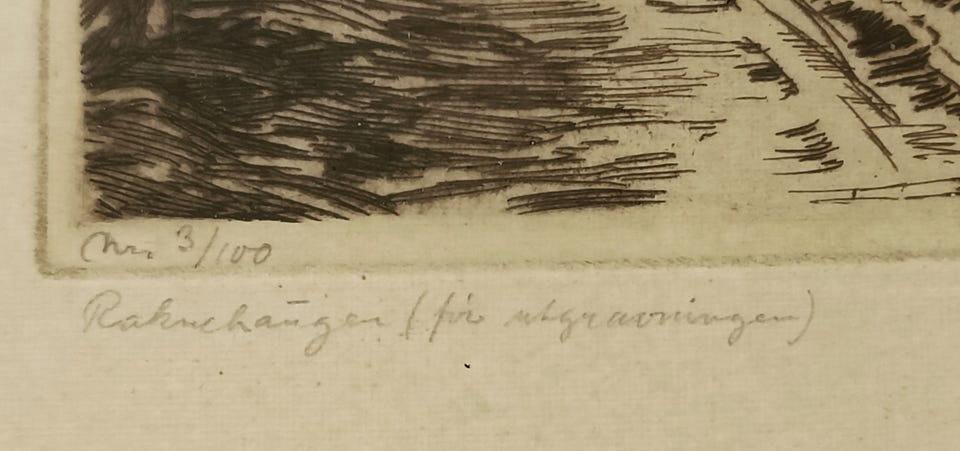 Nr. 3/100
Raknehaugen (før utgravningen)